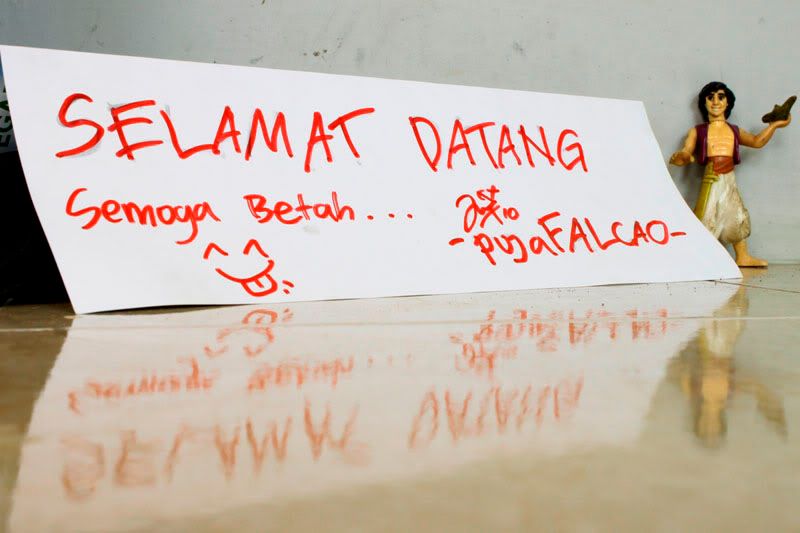 SELAMAT DATANG
Semoga Betah...
-pugaFALCAO-